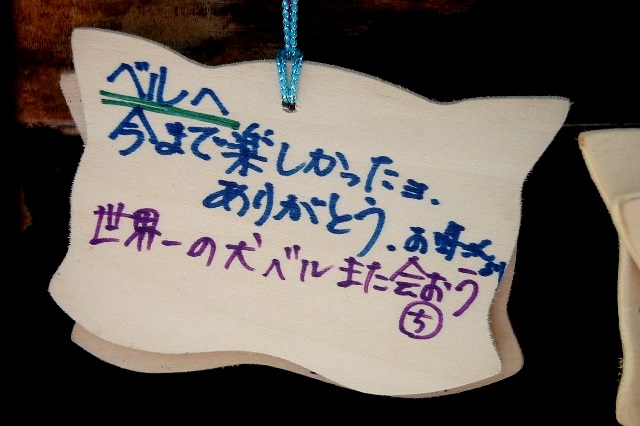 ベルへ
今まで楽しかったョ.
ありがとう.お母さんより
世界一の犬ベルまた会おう
ち